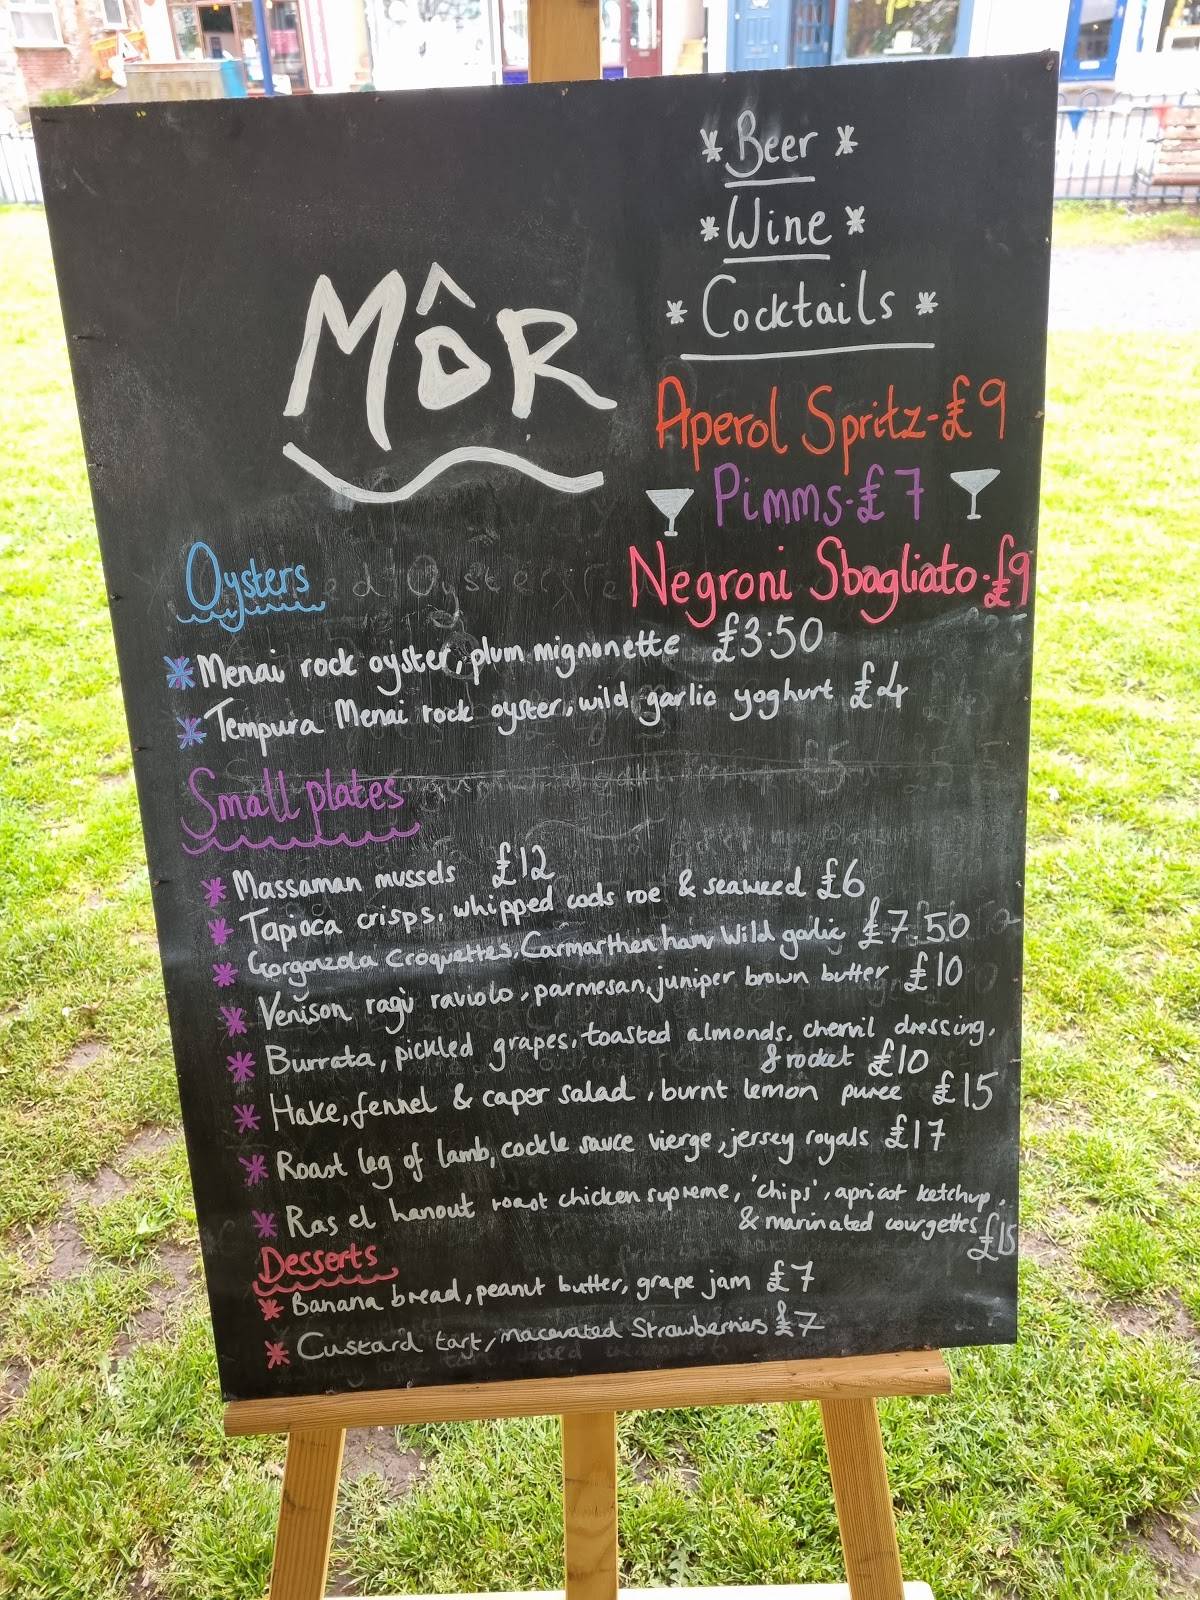 *Beer*
*Wine*
*Cocktails*
MÔR
Aperol Spritz-£9
Pimms-£7
Negroni Sbagliato-£9
Oysters
* Menai rock oyster, plum mignonette £3.50
* Tempura Menai rock oyster, wild garlic yoghurt £4
Small plates
* Massaman mussels £12
* Tapioca crisps, whipped cods roe & seaweed £6
* Gorgonzola Croquettes, Carmarthen ham, Wild garlic £7.50
* Venison ragù raviolo, parmesan, juniper brown butter £10
* Burrata, pickled grapes, toasted almonds, chervil dressing,
& rocket £10
* Hake, fennel & caper salad, burnt lemon puree £15
* Roast leg of lamb, cockle sauce vierge, jersey royals £17
* Ras el hanout roast chicken supreme, 'chips', apricot ketchup,
& marinated courgettes £15
Desserts
* Banana bread, peanut butter, grape jam £7
* Custard tart, macerated Strawberries £7